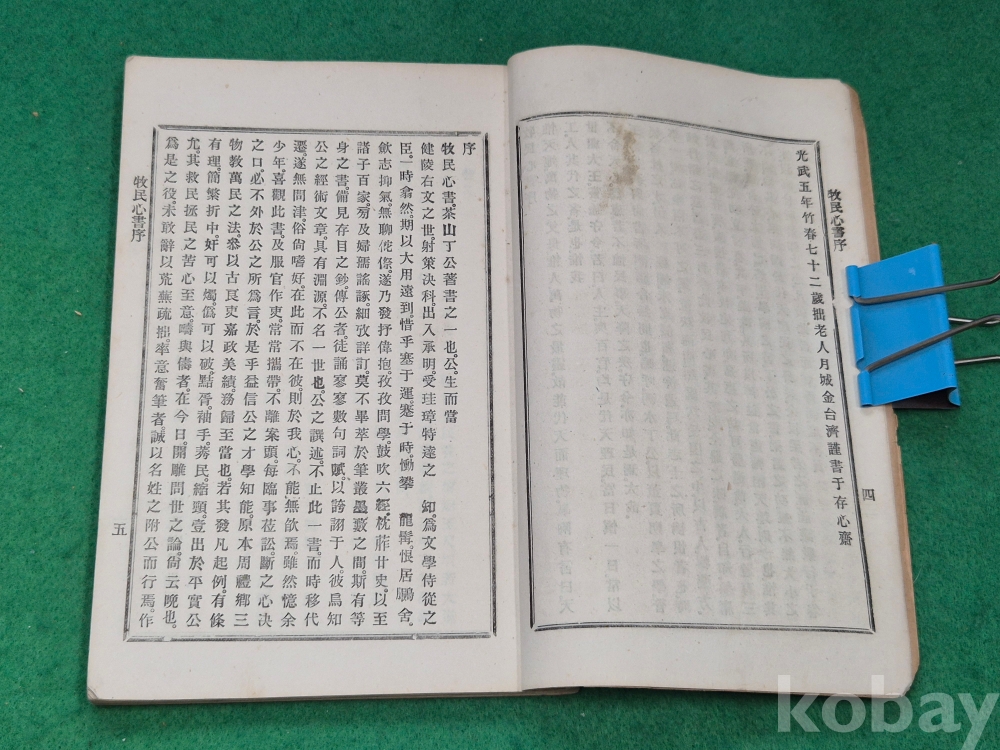 牧民心書序
光武五年竹春七十二歲拙老人月城金台濟謹書于存心齋
四
序
牧民心書。茶山丁公著書之一也。公。生而當
健陵右文之世。射策决科。出入承明。受珪璋特達之 知。爲文學侍從之
臣。一時翕然。期以大用遠到。惜乎。塞于運。蹇于時。慟攀 龍髯。恨居鵩舍。
歛志抑氣。無聊侘傺。遂乃發抒偉抱。孜孜問學。鼓吹六經。枕藉廿史。以至
諸子百家。旁及婦孺謠諑。細攷詳訂。莫不畢萃於筆叢墨藪之間。斯有等
身之書。備見存目之鈔。傳公者。徒誦寥寥數句詞賦。以誇詡于人。彼烏知
公之經術文章。具有淵源。不名一世也。公之譔述。不止此一書。而時移代
遷。遂無問津。俗尙嗜好。在此而不在彼。則於我心。不能無欿焉。雖然憶余
少年。喜觀此書。及服官作吏。常常攜帶。不離案頭。每臨事莅訟。斷之心决
之口。必不外於公之所爲言。於是乎益信公之才學知能。原本周禮鄕三
物敎萬民之法。叅以古良吏嘉政美績。務歸至當也。若其發凡起例。有條
有理。簡繁折中。奸可以燭。僞可以破。黠胥。袖手。莠民。縮頸。壹出於平實公
尤。其救民拯民之苦心至意。疇與儔者。在今日。開雕問世之論。尙云晚也。
爲是之役。未敢辭以荒蕪疏拙。率意奮筆者。誠以名姓之附公而行焉。作
牧民心書序
五
kobay